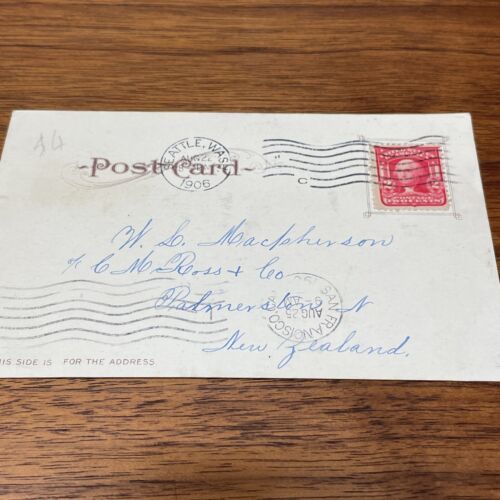 $4
SEATTLE, WASH.
AUG 22
1906
-Post Card-
C
W. L. Macpherson
c/o C M Ross & Co
Palmerston N
New Zealand.
SAN FRANCISCO, CAL.
AUG 25
THIS SIDE IS FOR THE ADDRESS